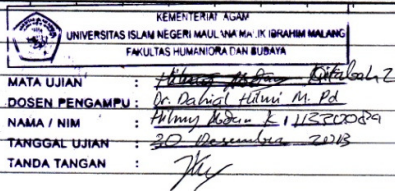 KEMENTERIAN AGAMA
UNIVERSITAS ISLAM NEGERI MAULANA MALIK IBRAHIM MALANG
FAKULTAS HUMANIORA DAN BUDAYA
MATA UJIAN : Kitabah 2
DOSEN PENGAMPU : Dr. Dahial Hilmi M. Pd
NAMA / NIM : Hilmy
TANGGAL UJIAN : 30 Desember 2013
TANDA TANGAN :